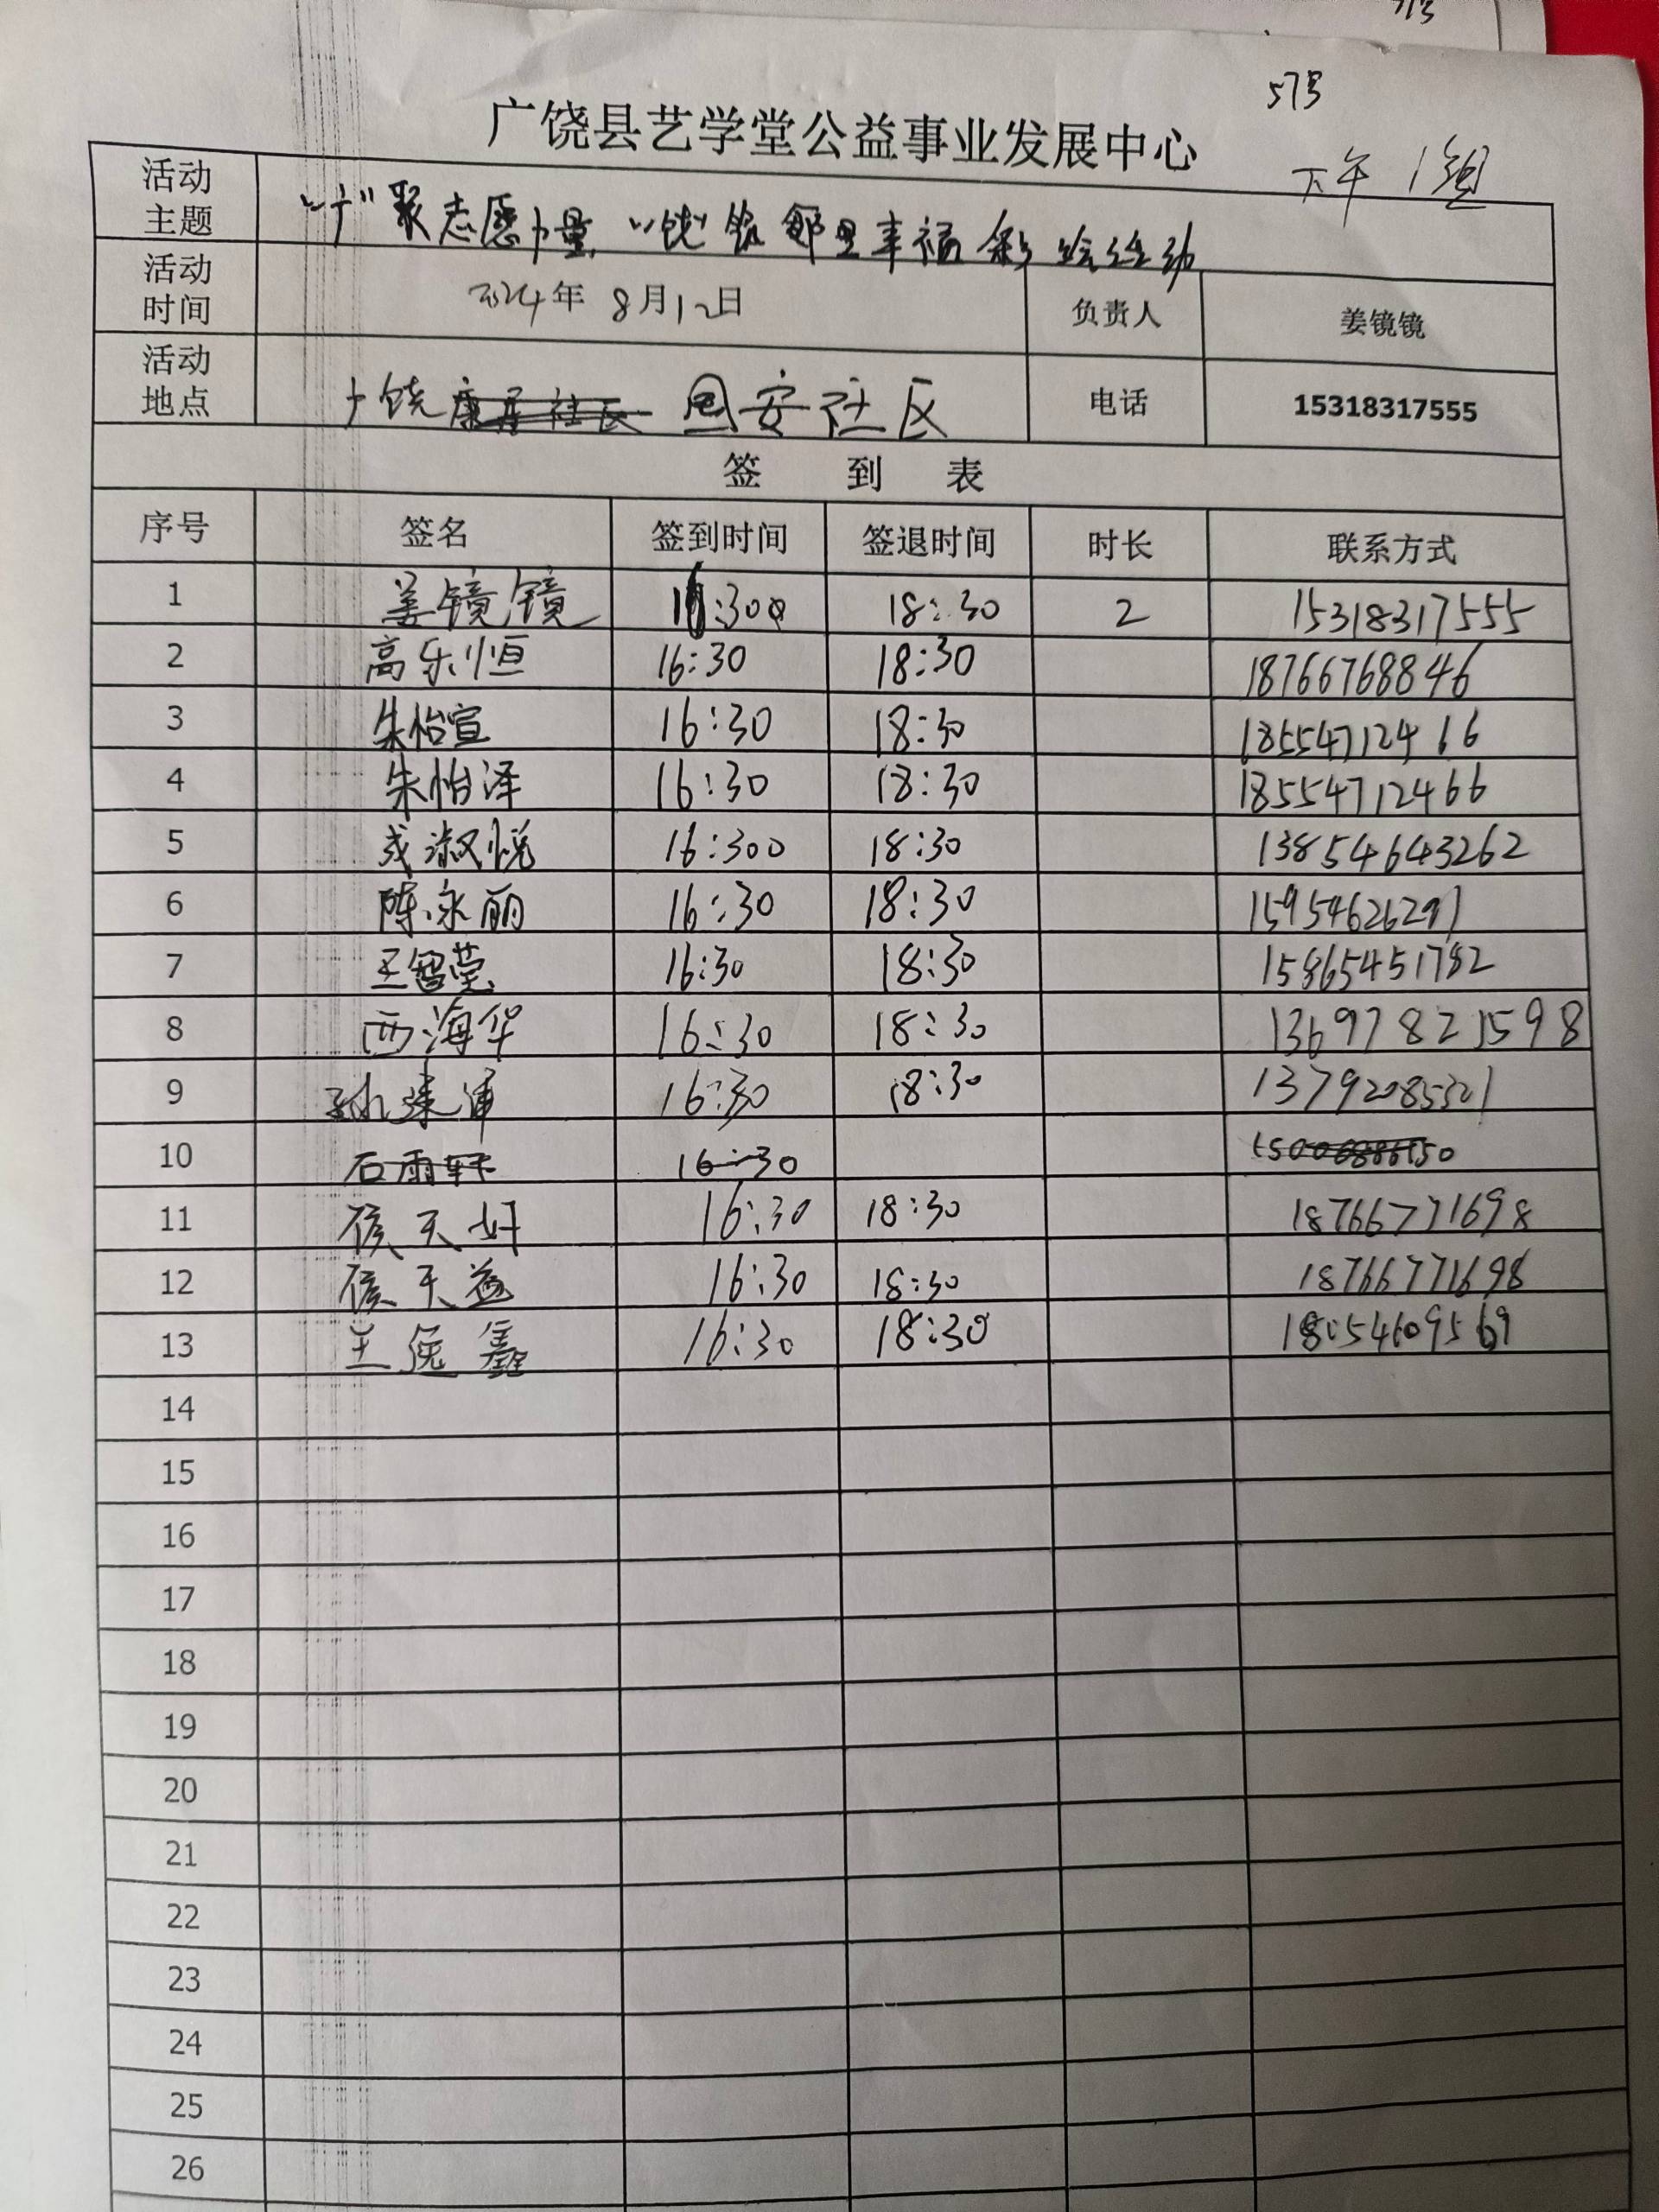 513
广饶县艺学堂公益事业发展中心
下午 1组
活动主题 "广"聚志愿力量 "饶" 邻里幸福 彩绘活动
活动时间 2024年 8月12日 负责人 姜镜镜
活动地点 广饶 康居社区 安社区 电话 15318317555
签 到 表
序号 签名 签到时间 签退时间 时长 联系方式
1 姜镜镜 18:30 2 15318317555
2 高乐恒 16:30 18:30 18766768846
3 朱怡宣 16:30 18:30 18554712466
4 朱怡泽 16:30 18:30 18554712466
5 成淑悦 16:300 18:30 13854643262
6 陈永丽 16:30 18:30 15954626291
7 王智莹 16:30 18:30 15865451782
8 西海华 16:30 18:30 13697821598
9 孙 16:30 18:30 13792085321
10 石雨轩 16:30
11 侯天妤 16:30 18:30 18766771698
12 侯天益 16:30 18:30 18766771698
13 王俊鑫 16:30 18:30
14
15
16
17
18
19
20
21
22
23
24
25
26